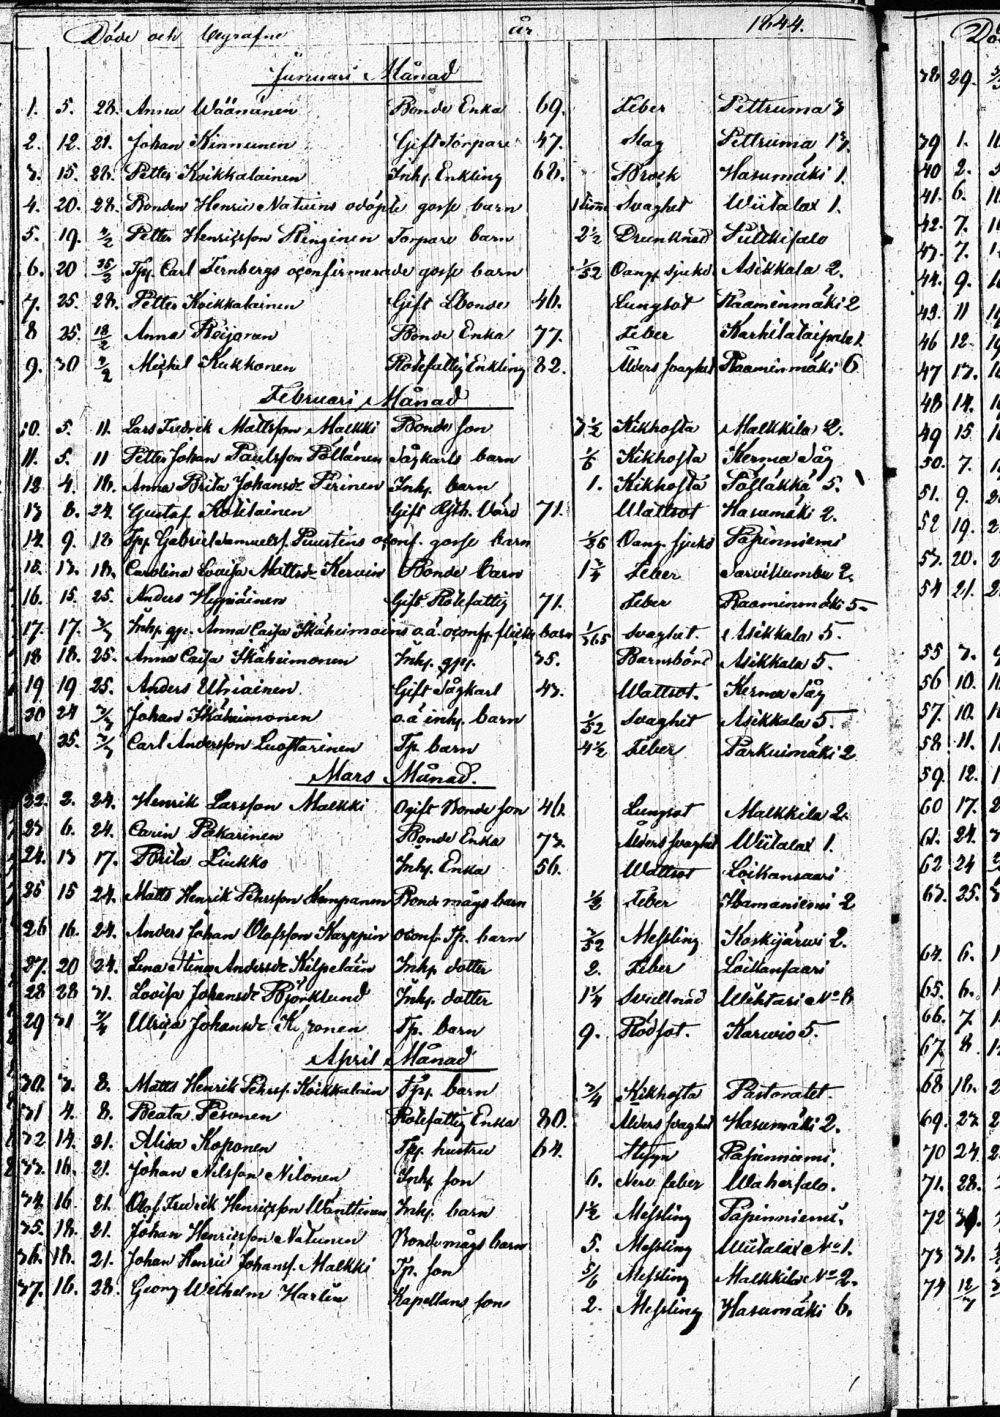 Döde och Begrafne år 1844.
Januari Månad
1. 5. 28. Anna Wäänänen Bonde Enka 69. Feber Pettruma 3
2. 12. 21. Johan Kinnunen Gift Torpare 47. Slag Pettruma 13.
3. 15. 28. Petter Koikkalainen Inhs Enkling 68. Bråck Hasumäki 1.
4. 20. 28. Bonden Henric Natuins odöpte gosse barn Svaghet Wiitalax 1.
5. 19. 4/2 Petter Henricsson Ringinen Torpare barn 2 1/2 Drunknad
6. 20 25/2 Tpp Carl Ternbergs oconfirmerade gosse barn 1/52 Oangs sjukd Asikkala 2.
7. 25. 28. Petter Koikkalainen Gift Bonde 46. Lungsot Raaminmäki 2
8 25. 18/2 Anna Roijaran Bonde Enka 77. Feber Karhilataipale 1.
9. 30 4/2 Michel Kukkonen Rotefattig Enkling 82. Ålders svaghet Raaminmäki 6
Februari Månad
10. 5. 11. Lars Fredrik Mattsson Malkki Bonde son 3 1/2 Kikhosta Malkkila 2.
11. 5. 11 Petter Johan Paulsson Pöllänen Sågkarls barn 1/6 Kikhosta Kerma Såg
12 4. 18. Anna Brita Johansdr Perinen Inhs. barn 1. Kikhosta Pölläkkä 5.
13 8. 24. Gustaf Kotilainen Gift 71. Wattsot Hasumäki 2.
14. 9. 18 Tpp Gabriel Samuelss. Puustins oconf. gosse barn Oang. sjukd Papinniemi
15. 13. 18. Carolina Lovisa Mattsdr Kervin Bonde barn 1 3/4 Feber Sarvikumbu 2.
16. 15. 25. Anders Hypiäinen Gift Rotefattig 71. Feber Raaminmäki 5
17. 17. 3/3 Inhs qp. Anna Caisa Ikäheimoins o.ä. oconf. flicke barn 1/365 Svaghet. Asikkala 5.
18 18. 25. Anna Caisa Ikäheimonen Inhs. qp. 35. Barnsbörd Asikkala 5.
19 19 25. Anders Utriainen Gift Sågkarl 43. Wattsot. Kerma Såg
20 24 3/3 Johan Ikäheimonen o.ä inhs. barn 1/52 Svaghet Asikkala 5.
25. 3/3 Carl Andersson Luostarinen Tp barn 4 1/2 Feber Parkuimäki 2
Mars Månad.
22. 2. 24. Henrik Larsson Malkki Ogift Bonde son 46. Lungsot Malkkila 2.
23 6. 24. Carin Pekarinen Bonde Enka 73. Ålders svaghet Wiitalax 1.
24. 13 17. Brita Liukko Inhs. Enka 56. Wattsot Loikansaari
25 15 24. Matts Henrik Pehrsson Kumpanen Bonde mågs barn 1/2 Feber Hamaniemi 2
26 16. 24. Anders Johan Olofsson Karppin oconf. Tp. barn 3/52 Messling Koskijärwi 2.
27. 20 24. Lena Stina Andersdr Kilpeläin Inhs dotter 2. Feber Loikansaari
28 28 31. Lovisa Johansdr Björklund Inhs. dotter 1 1/4 Svullnad Wihtari No 8
29 31 3/4 Ulrica Johansdr Tp. barn 9. Rödsot. Karwio 5.
April Månad
30. 3. 8. Matts Henrik Pehrss. Koikkalain Tpp barn 3/4 Kikhosta Pastoratet.
31 4. 8. Beata Pesonen Rotefattig Enka 80. Ålders svaghet Hasumäki 2.
32 14. 21. Alisa Koponen Tpp. hustru 64. Styng Papinniemi.
33. 16. 21. Johan Nilsson Nilonen Inhs son 6. Nerv feber Wahersalo.
34. 16 21. Olof Fredrik Henricsson Wänttinen Inhs. barn 1 1/2 Messling Papinniemi.
35. 18. 21. Johan Henricsson Natunen Bonde mågs barn 5. Messling Wiitalax No 1.
36. 18. 21. Johan Henric Johanss. Malkki Tp. son 5/6 Messling Malkkila No 2.
37. 16. 28. Georg Wilhelm Harlin Kapellans son 2. Messling Hasumäki 6.
38 29.
39 1.
40 2.
41. 6.
42. 7.
43. 7.
44. 9.
45. 11
46 12.
47 13.
48 14.
49 15.
50. 7.
51. 9.
52 19.
53. 20.
54 21.
55 3.
56 10.
57. 10.
58 11.
59. 12.
60 17.
61. 24.
62 24
63. 25.
64. 6.
65. 6.
66. 7.
67. 8.
68 18.
69. 23
70 24.
71. 28.
72
73 31.
74 12/3